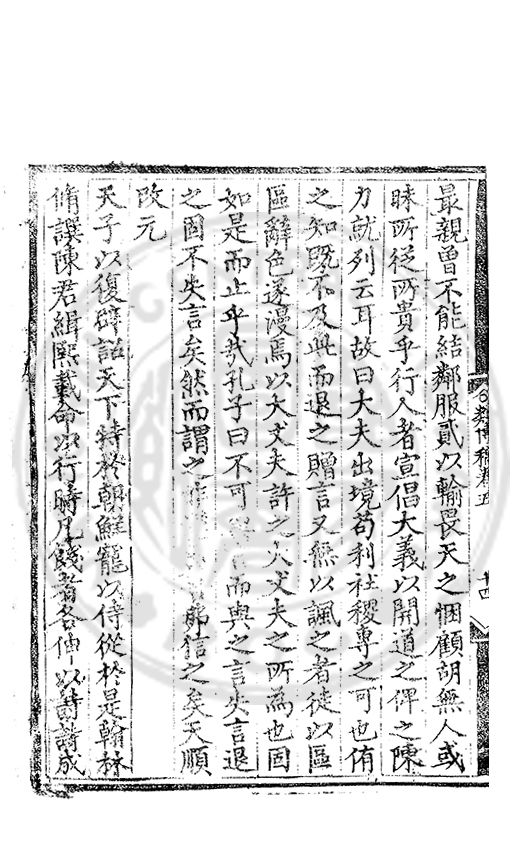 最親曽不能結鄰服貳以輸畏天之悃顧胡無人或
昧所從所貴乎行人者宣倡大義以開道之俾之陳
力就列云耳故曰大夫出境苟利社稷專之可也侑
之知既不及此而退之贈言又無以諷之者徒以區
區辭色遂漫焉以大丈夫許之大丈夫之所為也固
如是而止乎哉孔子曰不可與言而與之言失言退
之固不失言矣然而謂之能信之矣天順
改元
天子以復辟詔天下特於朝鮮寵以侍從於是翰林
脩譔陳君緝熙載命以行時凡餞者各伸以詩詩成
類博稿卷五
十四